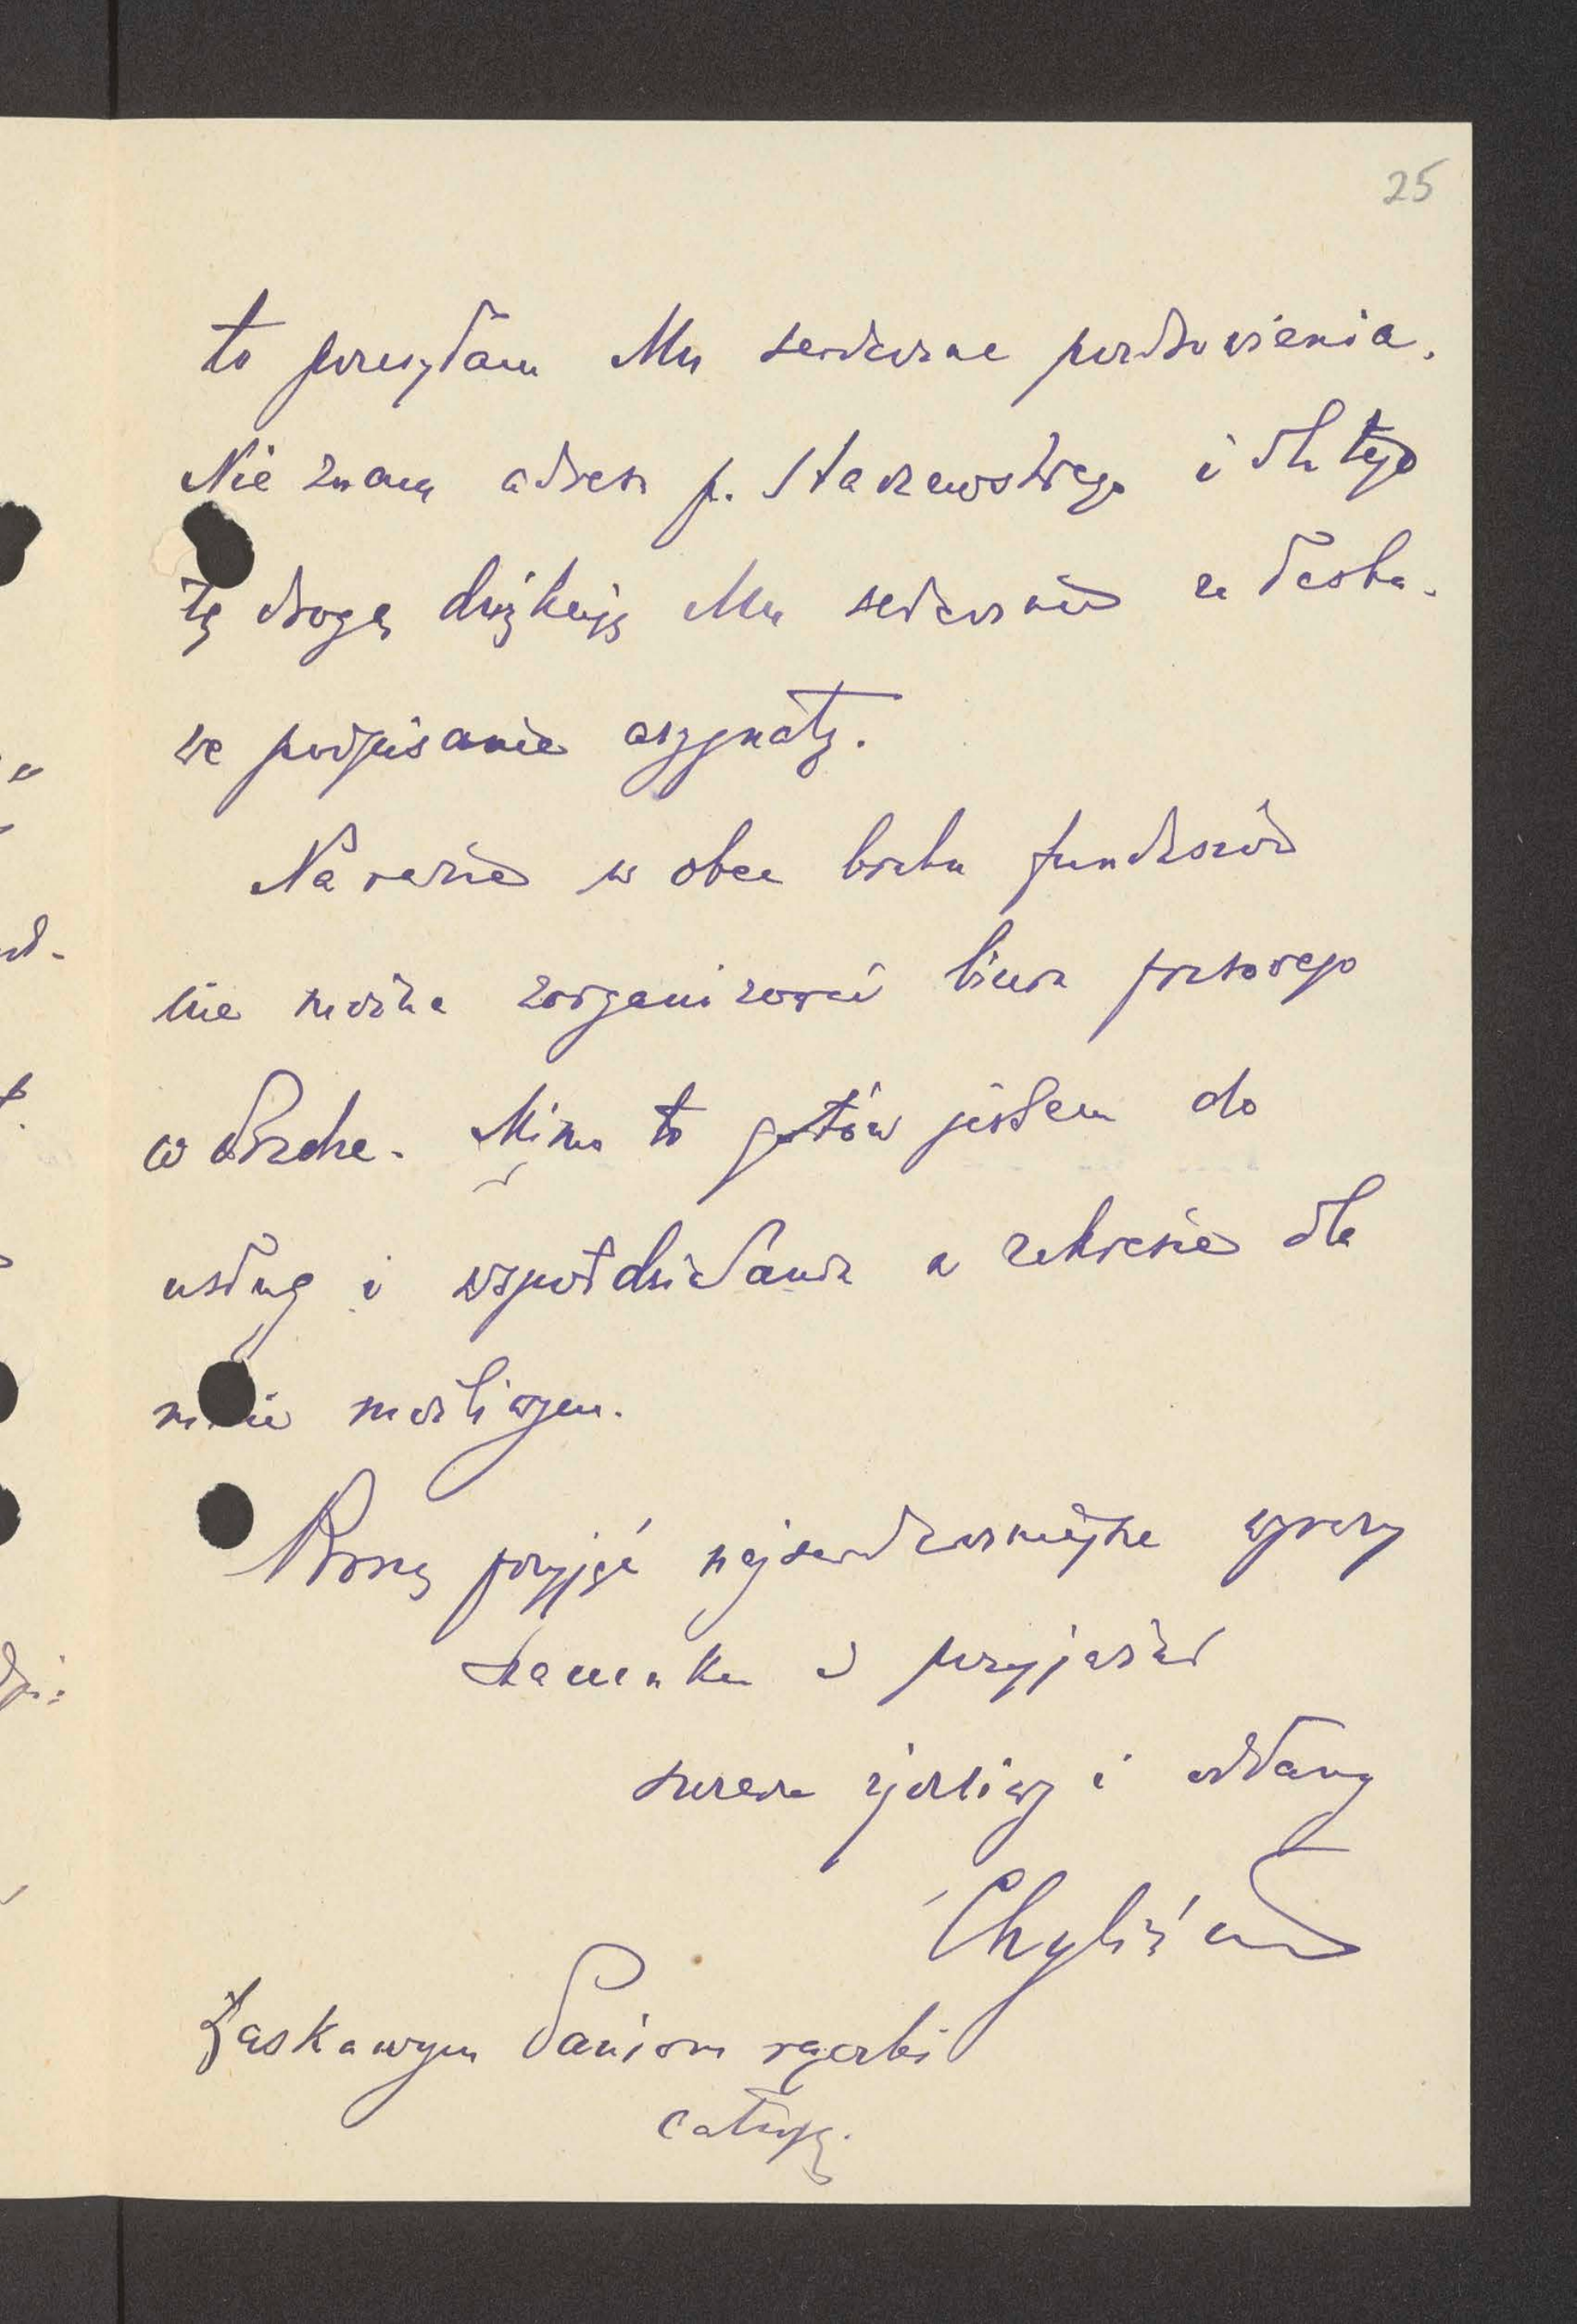 25
to przesyłam Mu serdeczne pozdrowienia.
Nie znam adresu p. Staszewskiego i dla tego
tą drogą dziękuję Mu serdecznie za łaska-
we podpisanie asygnaty.
Na razie wobec braku funduszów
nie można zorganizować biura prasowego
w Pradze. Mimo to gotów jestem do
usług i współdziałania w zakresie dla
mnie możliwym.
Proszę przyjąć najserdeczniejsze wyrazy
szacunku i przyjaźni
szczerze życzliwy i oddany
Łaskawym Paniom rączki
całuję.